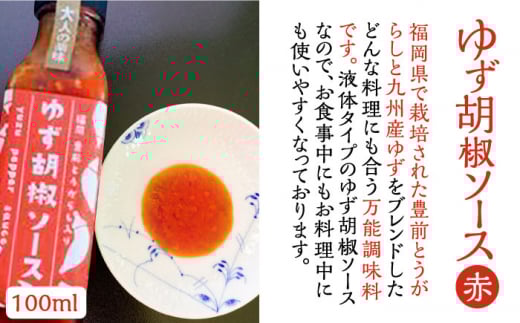 ゆず胡椒ソース
赤
福岡県で栽培された豊前とうが
らしと九州産ゆずをブレンドした
どんな料理にも合う万能調味料
です。液体タイプのゆず胡椒ソース
なので、お食事中にもお料理中に
も使いやすくなっております。
大人の風味
福岡・豊前とうがらし入り
ゆず胡椒ソース
yuzu pepper sauce
100ml